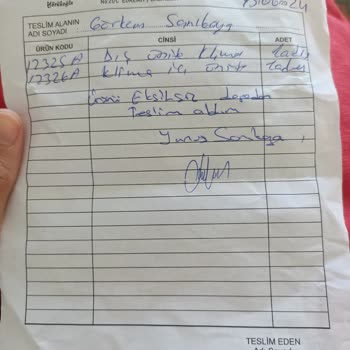 TESLİM ALANIN
ADI SOYADI
Görkem Sarılbaga
ÜRÜN KODU CİNSİ ADET
12325A Dış ünite klima 1 adet
12326A Klima iç ünite 1 adet
Ürünü Eksiksiz depodan
Teslim aldım
Yunus
TESLİM EDEN